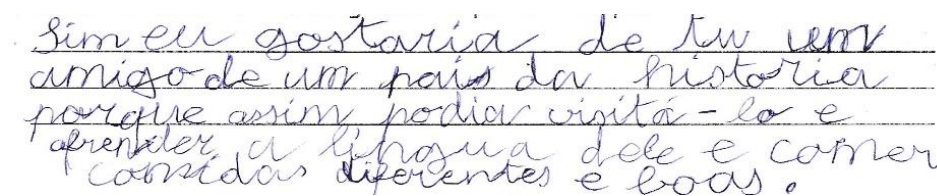 Sim eu gostaria de tu um
amigo de um país da historia
porque assim podia visitá-lo e
aprender a lingua dele e comer
comidas diferentes e boas.